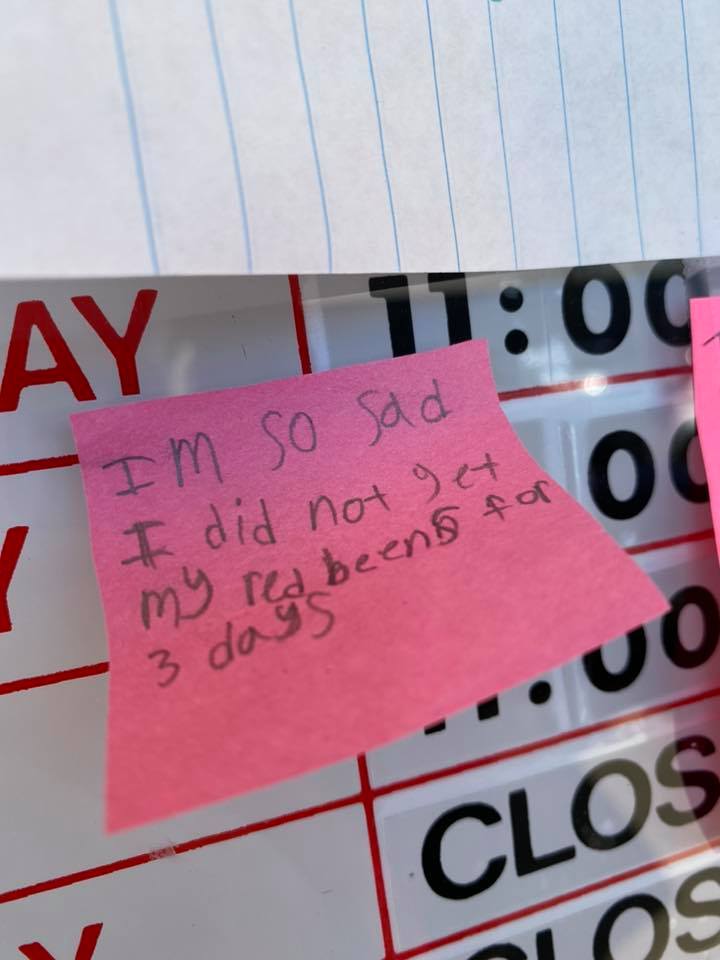 AY
11:00
I'm so sad
I did not get
my red beens for
3 days
Y
00
:00
CLOS
Y
CLOS